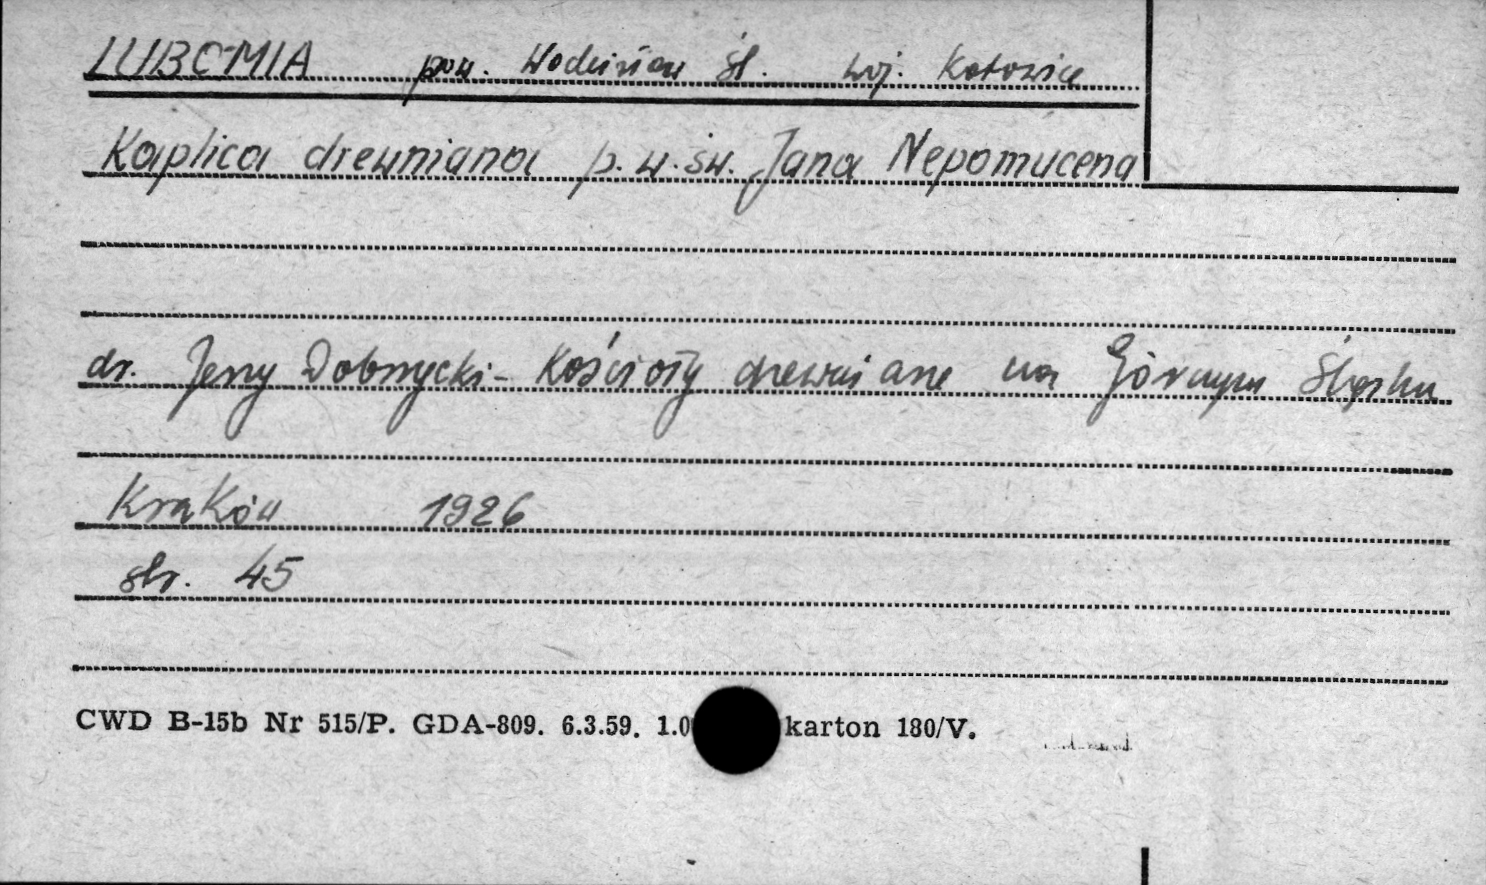 LUBOMIA pow. Wodzisław Śl. woj. Katowice
Kaplica drewniana p.w. św. Jana Nepomucena
dr. Jerzy Dobrzycki - Kościoły drewniane na Górnym Śląsku
Kraków 1926
str. 45
CWD B-15b Nr 515/P. GDA-809. 6.3.59. 1.0 karton 180/V.